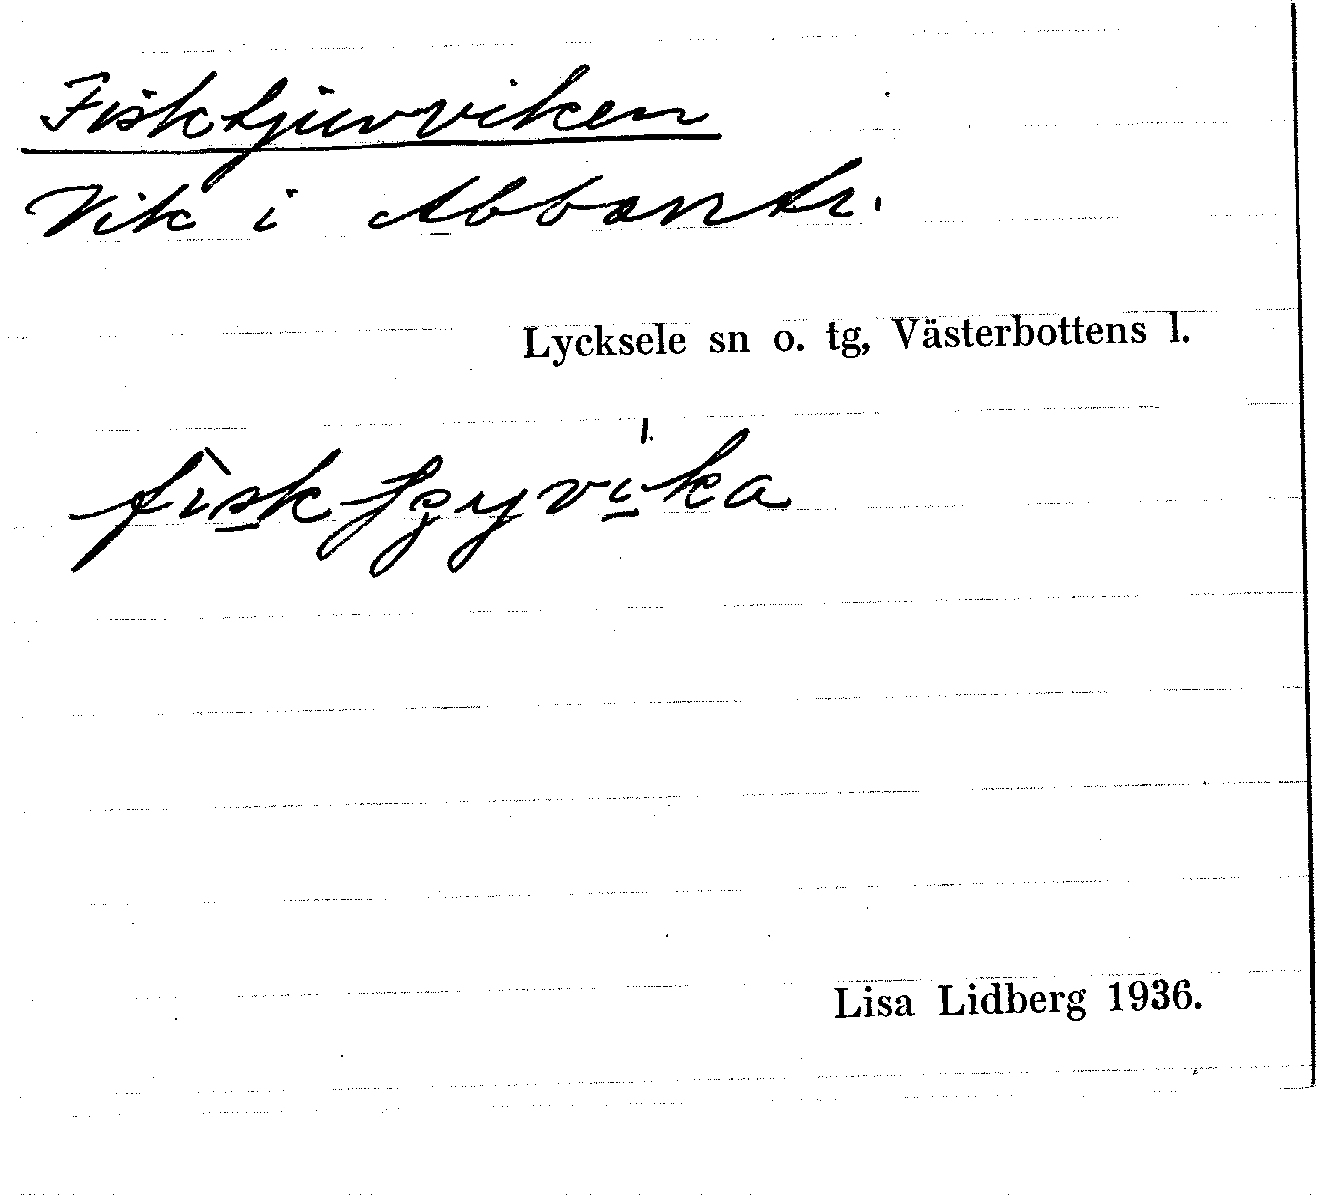 Fisktjuvviken
Vik i Abbontr.
Lycksele sn o. tg, Västerbottens l.
Lisa Lidberg 1936.